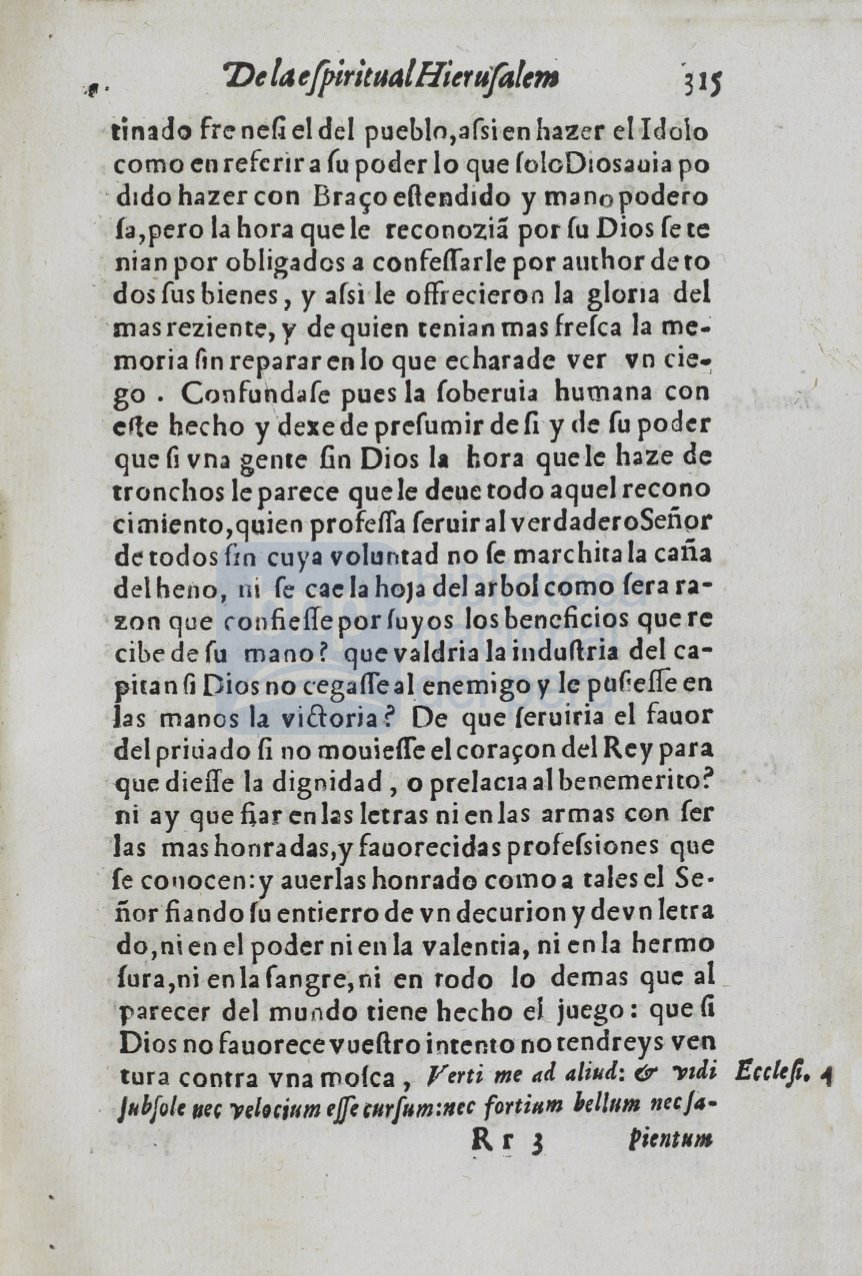 De la eſpiritual Hieruſalem 315
tinado freneſi el del pueblo, aſsi en hazer el Idolo
como en referir a ſu poder lo que ſolo Dios auia po
dido hazer con Braço eſtendido y mano podero
ſa, pero la hora que le reconoziã por ſu Dios ſe te
nian por obligados a confeſſarle por author de to
dos ſus bienes, y aſsi le offrecieron la gloria del
mas reziente, y de quien tenian mas freſca la me-
moria ſin reparar en lo que echara de ver vn cie-
go. Confundaſe pues la ſoberuia humana con
eſte hecho y dexe de preſumir de ſi y de ſu poder
que ſi vna gente ſin Dios la hora que le haze de
tronchos le parece que le deue todo aquel recono
cimiento, quien profeſſa ſeruir al verdadero Señor
de todos ſin cuya voluntad no ſe marchita la caña
del heno, ni ſe cae la hoja del arbol como ſera ra-
zon que confieſſe por ſuyos los beneficios que re
cibe de ſu mano? que valdria la induſtria del ca-
pitan ſi Dios no cegaſſe al enemigo y le puſieſſe en
las manos la victoria? De que ſeruiria el fauor
del priuado ſi no mouieſſe el coraçon del Rey para
que dieſſe la dignidad, o prelacia al benemerito?
ni ay que fiar en las letras ni en las armas con ſer
las mas honradas, y fauorecidas profeſsiones que
ſe conocen: y auerlas honrado como a tales el Se-
ñor fiando ſu entierro de vn decurion y de vn letra
do, ni en el poder ni en la valentia, ni en la hermo
ſura, ni en la ſangre, ni en todo lo demas que al
parecer del mundo tiene hecho el juego: que ſi
Dios no fauorece vueſtro intento no tendreys ven
tura contra vna moſca, Verti me ad aliud: & vidi Eccleſi. 4
ſubſole nec velocium eſſe curſum: nec fortium bellum nec ſa-
R r 3 pientum